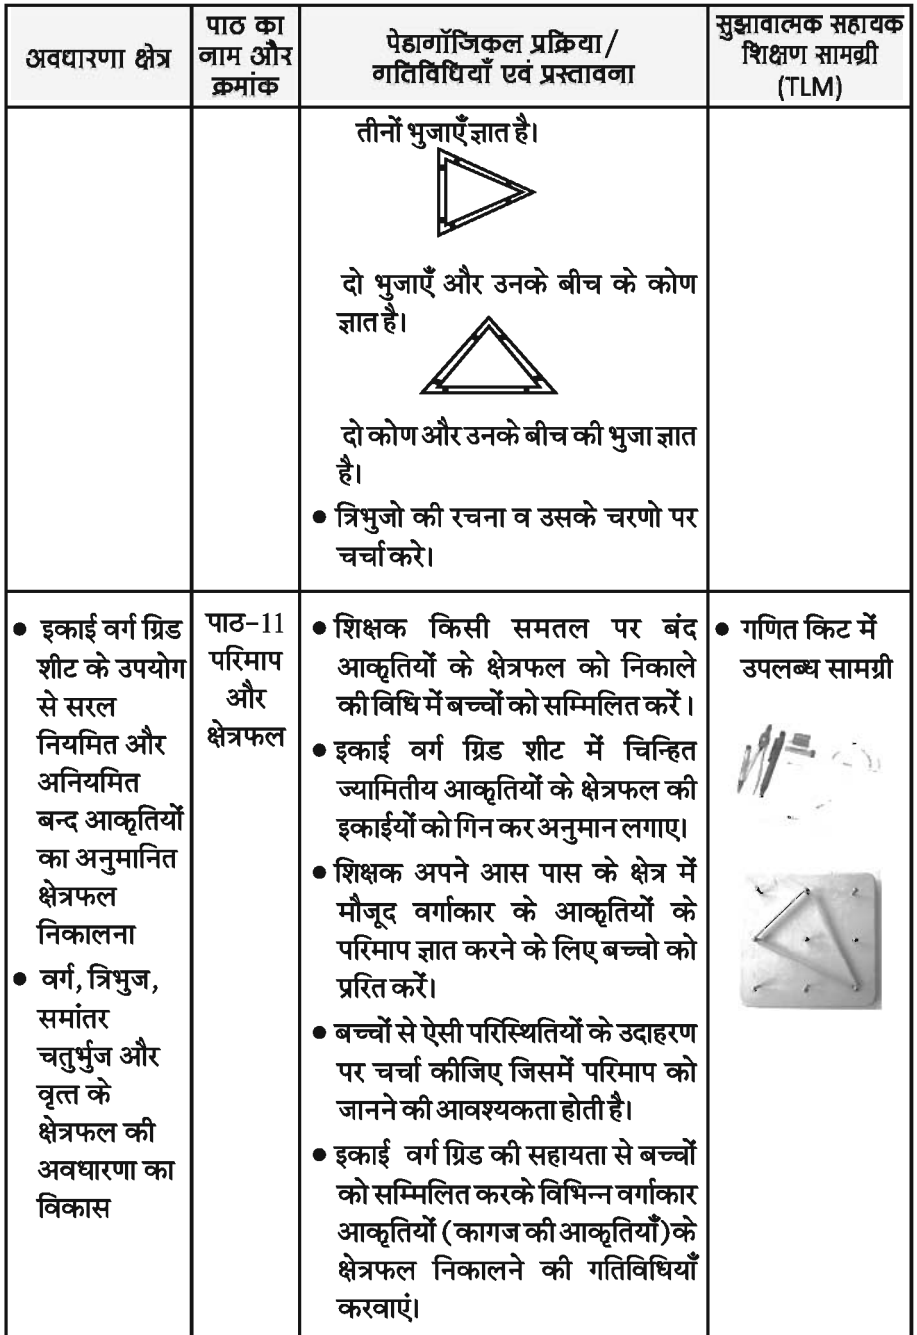 अवधारणा क्षेत्र
पाठ का
नाम और
क्रमांक
पेडागॉजिकल प्रक्रिया/
गतिविधियाँ एवं प्रस्तावना
सुझावात्मक सहायक
शिक्षण सामग्री
(TLM)
तीनों भुजाएँ ज्ञात है।
दो भुजाएँ और उनके बीच के कोण
ज्ञात है।
दो कोण और उनके बीच की भुजा ज्ञात
है।
● त्रिभुजो की रचना व उसके चरणो पर
चर्चा करे।
● इकाई वर्ग ग्रिड
शीट के उपयोग
से सरल
नियमित और
अनियमित
बन्द आकृतियों
का अनुमानित
क्षेत्रफल
निकालना
● वर्ग, त्रिभुज,
समांतर
चतुर्भुज और
वृत्त के
क्षेत्रफल की
अवधारणा का
विकास
पाठ-11
परिमाप
और
क्षेत्रफल
● शिक्षक किसी समतल पर बंद
आकृतियों के क्षेत्रफल को निकाले
की विधि में बच्चों को सम्मिलित करें।
● इकाई वर्ग ग्रिड शीट में चिन्हित
ज्यामितीय आकृतियों के क्षेत्रफल की
इकाईयों को गिन कर अनुमान लगाए।
● शिक्षक अपने आस पास के क्षेत्र में
मौजूद वर्गाकार के आकृतियों के
परिमाप ज्ञात करने के लिए बच्चो को
प्ररित करें।
● बच्चों से ऐसी परिस्थितियों के उदाहरण
पर चर्चा कीजिए जिसमें परिमाप को
जानने की आवश्यकता होती है।
● इकाई वर्ग ग्रिड की सहायता से बच्चों
को सम्मिलित करके विभिन्न वर्गाकार
आकृतियों (कागज की आकृतियाँ)के
क्षेत्रफल निकालने की गतिविधियाँ
करवाएं।
● गणित किट में
उपलब्ध सामग्री